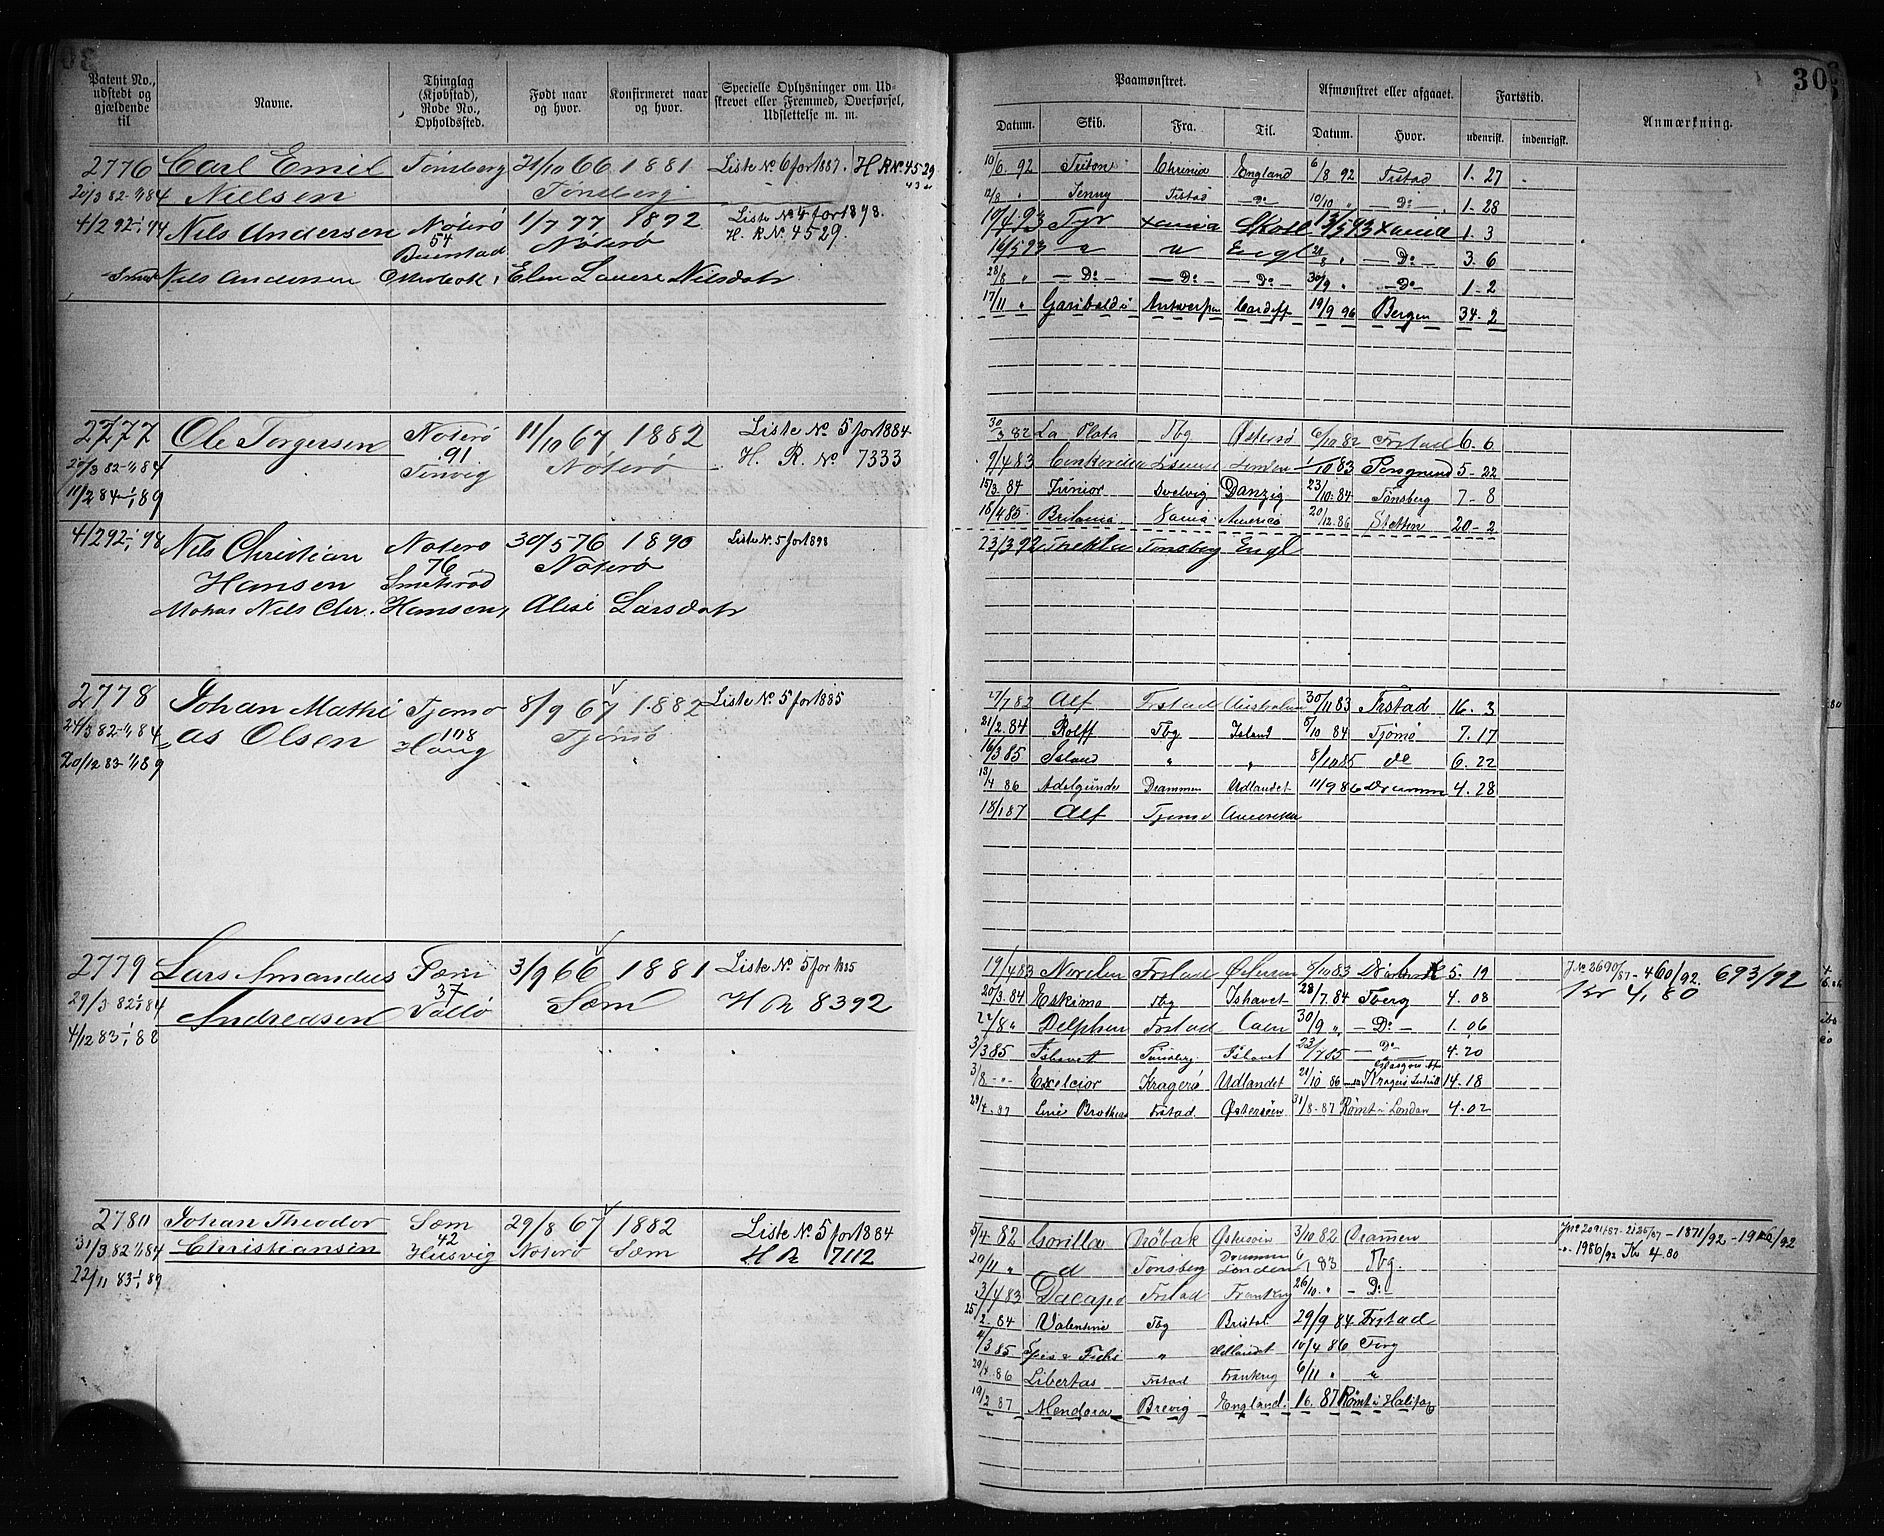 30
Patent No., udstedt og gjældende til
Navne.
Thinglag (Kjøbstad), Rode No., Opholdssted.
Født naar og hvor.
Konfirmeret naar og hvor.
Specielle Oplysninger om Udskrevet eller Fremmed, Overførsel, Udslettelse m. m.
2776 Carl Emil Tønsberg 21/10 66 1881 Liste No 6 for 1887. H R No. 4529
20/3 82-1/1 84 Nielsen Tønsberg
4/2 92-1/1 94 Nils Andersen Nøterø 1/7 77 1892 Liste No 4 for 1898.
54 Nøterø H. R No. 4529.
Nils Andersen Elen Lovise Nilsdatr
2777 Ole Torgersen Nøterø 11/10 67 1882 Liste No 5 for 1884
20/3 82-1/1 84 91 Nøterø H. R. No 7333
11/2 84-1/1 89 Tenvig
4/2 92-1/1 98 Nils Christian Nøterø 30/5 76 1890 Liste No. 5 for 1898
Hansen 76 Smidsrød Nøterø
Nils Chr. Hansen, Alise Larsdatr
2778 Johan Mathi Tjømø 8/9 67 1882 Liste No 5 for 1885
24/3 82-1/1 84 as Olsen 108 Haug Tjømø
20/12 83-1/1 89
2779 Lars Amandus Sæm 3/9 66 1881 Liste No 5 for 1885
29/3 82-1/1 84 Andreasen 37 Vallø Sæm H R 8392
4/12 83-1/1 88
2780 Johan Theodor Sæm 29/8 67 1882 Liste No. 5 for 1884
31/3 82 1/1 84 Christiansen 42 Husvig Nøterø Sæm H R 7112
22/11 83-1/1 89
Paamønstret.
Afmønstret eller afgaaet.
Fartstid.
Anmærkning.
Datum. Skib. Fra. Til. Datum. Hvor. udenrisk. indenrigsk.
10/6 92 Triton Chrania England 6/8 92 Frstad 1. 27
12/8 " Jenny Frstad Do 10/10 " Do 1. 28
19/4 93 Tyr Xania Skotl 13/5 93 Xania 1. 3
16/5 93 " " Engl 21/8 " Do 3. 6
28/8 " Do Do Do 30/9 " Do 1 - 2
17/11 " Garibaldi Antwerpen Cardiff 19/9 96 Bergen 34 - 2
30/3 82 La Plata Tbg Østersø 6/10 82 Frstad 6. 6
9/4 83 1/10 83 Porsgrund 5 - 22
15/3 84 Junior Svelvig Danzig 23/10. 84 Tønsberg 7 - 8
16/4 85 Britania Xania America 20/12. 86 Stettin 20 - 2
23/3 92 Thekla Tønsberg Engl
17/7 82 Alf Frstad Australien 30/11 83 Frstad 16. 3
21/2. 84 Rolff Tbg Island 5/10 84 Tjømø 7. 17
16/3 85 Island " " 8/10 85 do 6. 22
13/4 86 Adelgunde Drammen Udlandet 11/9 86 Drammn 4. 28
18/1 87 Alf Tjømø Amerika
19/4 83 Norden Frstad Østersøen 9/10 83 5. 19 J No 2690/87 - 460/92. 693/92
20/3. 84 Eskimo Tbg Ishavet 28/7. 84 Tberg 4. 08 Kr 4,80
22/8 " Delphin Frstad Caen 30/9 " Do 1. 06
3/3 85 Ishavet Tønsberg Ishavet 23/7 85 Do 4. 20
3/8 " Exelcior Kragerø Udlandet 21/10 86 Kragerø 14 - 18
29/4. 87 Frstad Østersøen 31/8. 87 Rømt i London 4. 02
5/4 82 Gorilla Drøbak Østersøen 3/10 82 Dramen
29/11 " d Tønsberg Drammen London 6/1 83 Tbg.
3/4 83 Dacapo Frstad Frankrig 26/10. " Do
25/2. 84 Valentine Tbg Bristol 29/9 84 Frstad
4/3 85 " Udlandet 10/4 86
29/4. 86 Libertas Frstad Frankrig 6/11 " "
19/2 87 Mendora Brevig England. 87 Rømt i Halifax
1986/92 Kr 4.80